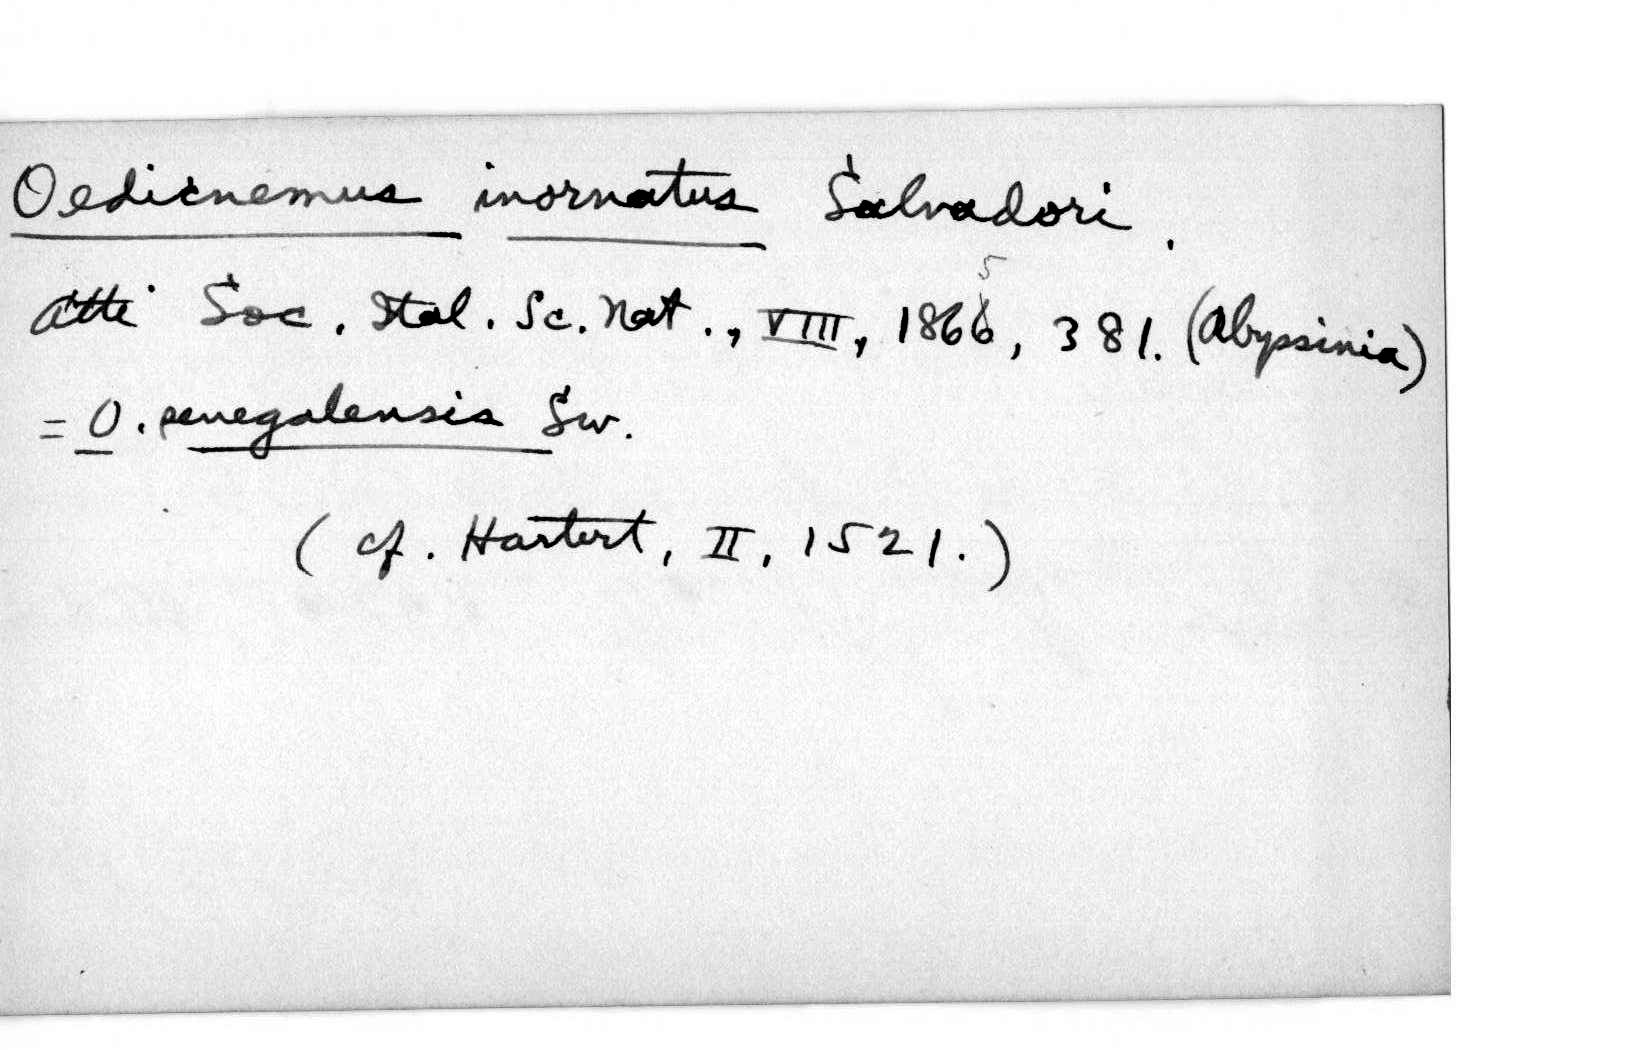 Oedicnemus inornatus Salvadori.
Atti Soc. Ital. Sc. Nat., VIII, 1866, 381. (Abyssinia)
5
= O. senegalensis Sw.
(cf. Hartert, II, 1521.)